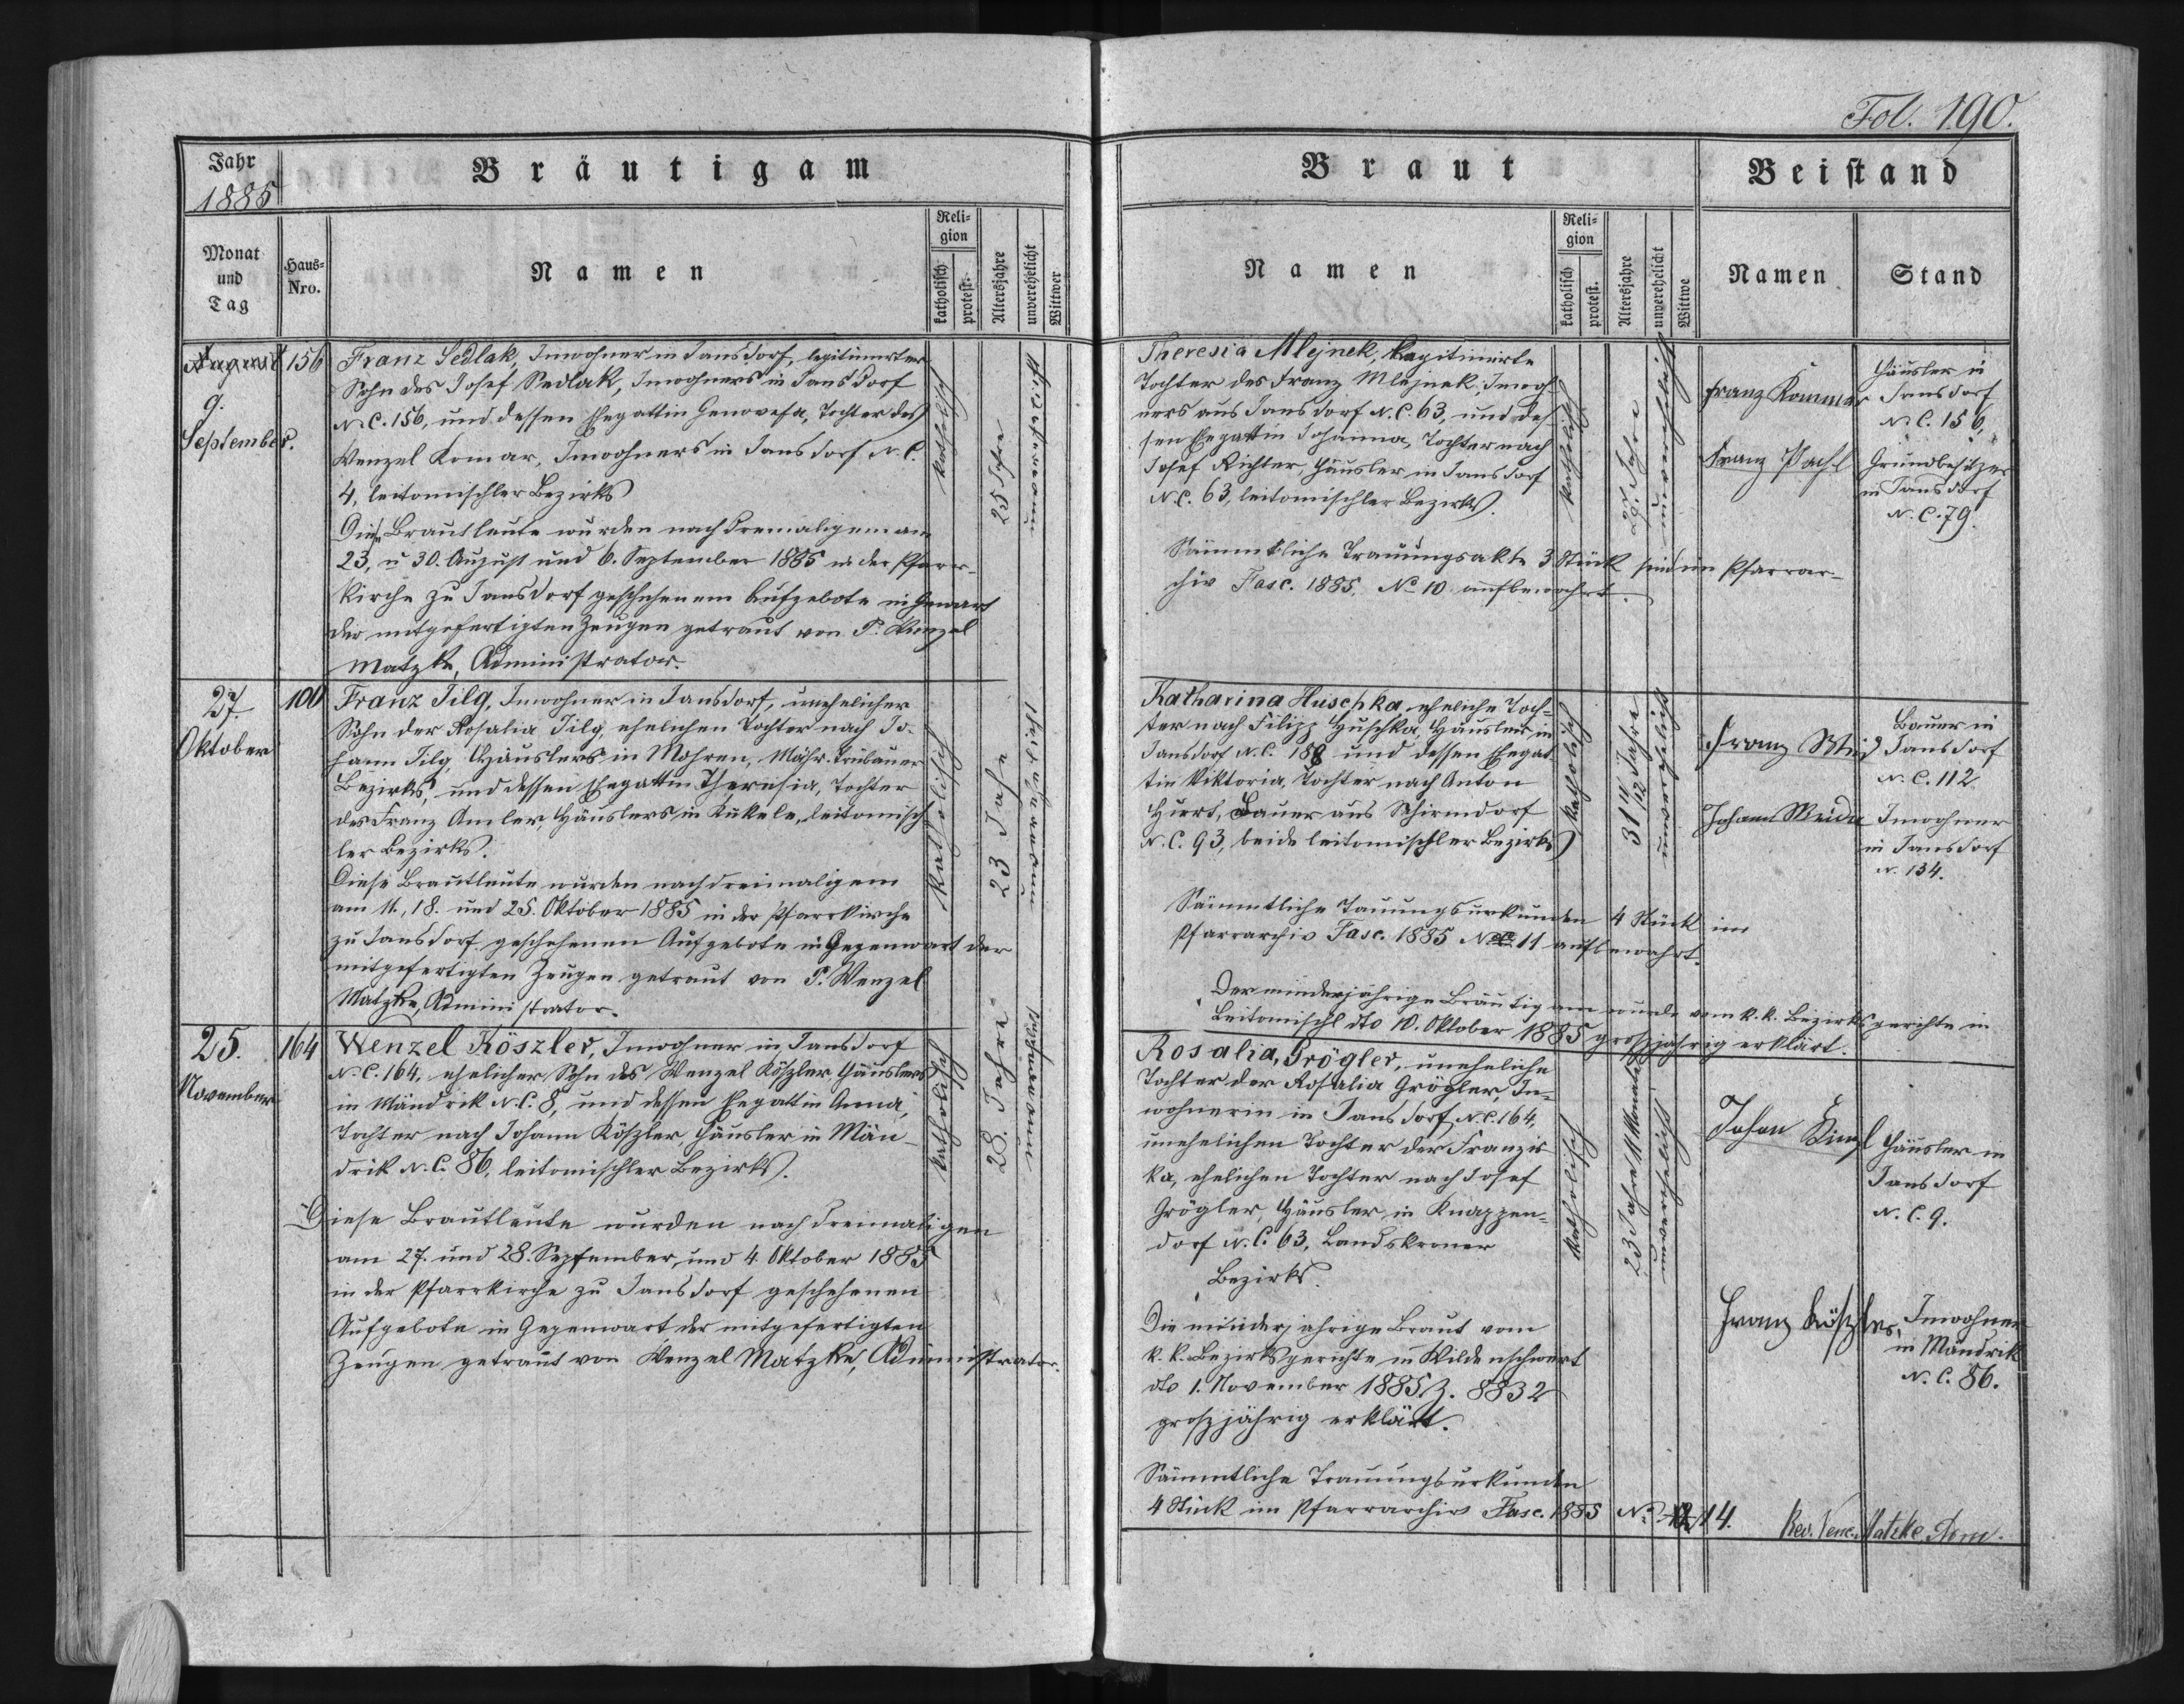 Fol. 190.
Jahr
1885
Bräutigam
Braut
Beistand
Monat
und
Tag
Haus-
Nro.
Namen
Reli-
gion
katholisch
protest.
Altersjahre
unverehelicht
Wittwer
Namen
Reli-
gion
katholisch
protest.
Altersjahre
unverehelicht
Wittwe
Namen
Stand
August
9.
September.
156
Franz Sedlak, Inwohner in Jansdorf, legitimirter
Sohn des Josef Sedlak, Inwohners in Jansdorf
N.C. 156, und dessen Ehegattin Genovefa, Tochter des
Wenzel Komar, Inwohners in Jansdorf N.C.
4, leitomischler Bezirks
Diese Brautleute wurden nach dremaligem am
23, u 30. August und 6. September 1885 in der Pfarr-
kirche zu Jansdorf geschehenem Aufgebote in
der mitgefertigten Zeugen getraut von P. Wenzel
Matzke, Administrator.
katholisch
25 Jahre
Theresia Mlejnek, legitimirte
Tochter des Franz Mlejnek, Inwoh
ners aus Jansdorf N.C. 63, und des
sen Ehegattin Johanna, Tochter nach
Josef Richter, Häusler in Jansdorf
N.C. 63, leitomischler Bezirks.
Sämmtliche Trauungsakte 3 Stück sind im Pfarrar-
chiv Fasc. 1885. No 10 aufbewahrt.
katholisch
Jahre
unverehelicht
Franz Kommar
Häusler in
Jansdorf
N.C. 156,
Franz Pachl
Grundbesitzer
in Jansdorf
N.C. 79.
27.
Oktober
100
Franz Jilg, Inwohner in Jansdorf, unehelicher
Sohn der Rosalia Jilg, ehelichen Tochter nach Jo-
hann Jilg, Häuslers in Mohren, Mähr. Trübauer
Bezirks, und dessen Ehegattin Theresia, Tochter
des Franz Amler, Häuslers in Kukele, leitomisch
ler Bezirks.
Diese Brautleute wurden nach dreimaligem
am 11., 18. und 25. Oktober 1885 in der Pfarrkirche
zu Jansdorf geschehenen Aufgebote in Gegenwart der
mitgefertigten Zeugen getraut von P. Wenzel
Matzke, Administrator.
katholisch
23 Jahre
Katharina Huschka eheliche Toch-
ter nach Filipp Huschka, Häusler in
Jansdorf N.C. 188 und dessen Ehegat
tin Viktoria, Tochter nach Anton
Hurt, Bauer aus Schirmdorf
N.C. 93, beide leitomischler Bezirks
Sämmtliche Tauungsurkunden 4 Stück im
Pfarrarchiv Fasc. 1885 No 11 aufbewahrt.
Der minderjährige Bräutigam wurde vom k.k. Bezirksgerichte in
Leitomischl dto 10. Oktober 1885 großjährig erklärt.
katholisch
31 Jahre
unverehelicht
Franz
Bauer in
Jansdorf
N.C. 112
Johann Weida
Inwohner
in Jansdorf
N. 134.
25.
November
164
Wenzel Köszler, Inwohner in Jansdorf
N.C. 164, ehelicher Sohn des Wenzel Köszler Häuslers
in Mändrik N.C. 8, und dessen Ehegattin Anna,
Tochter nach Johann Köszler, Häusler in Män-
drik N.C. 86, leitomischler Bezirks.
Diese Brautleute wurden nach dreimaligen
am 27. und 28. September, und 4. Oktober 1885
in der Pfarrkirche zu Jansdorf geschehenen
Aufgebote in Gegenwart der mitgefertigten
Zeugen getraut von Wenzel Matzke, Administrator.
katholisch
28. Jahre
Rosalia, Grögler, uneheliche
Tochter der Rosalia Grögler, In-
wohnerin in Jansdorf N.C. 164,
unehelichen Tochter der Franzis
ka, ehelichen Tochter nach Josef
Grögler, Häusler in Knappen-
dorf N.C. 63, Landskroner
Bezirks.
Die minderjahrige Braut vom
k.k. Bezirksgerichte in Wildenschwert
dto 1. November 1885 Z. 8832
groszjährig erklärt.
Sämmtliche Trauungsurkunden
4 Stück im Pfarrarchiv Fasc. 1885 No 14.
katholisch
23 Jahre 11 Monate
unverehelicht
Johan
Häusler in
Jansdorf
N.C. 9.
Franz Köszler,
Inwohner
in Mändrik
N.C. 86.
Rev. Venc. Matzke, Adm.